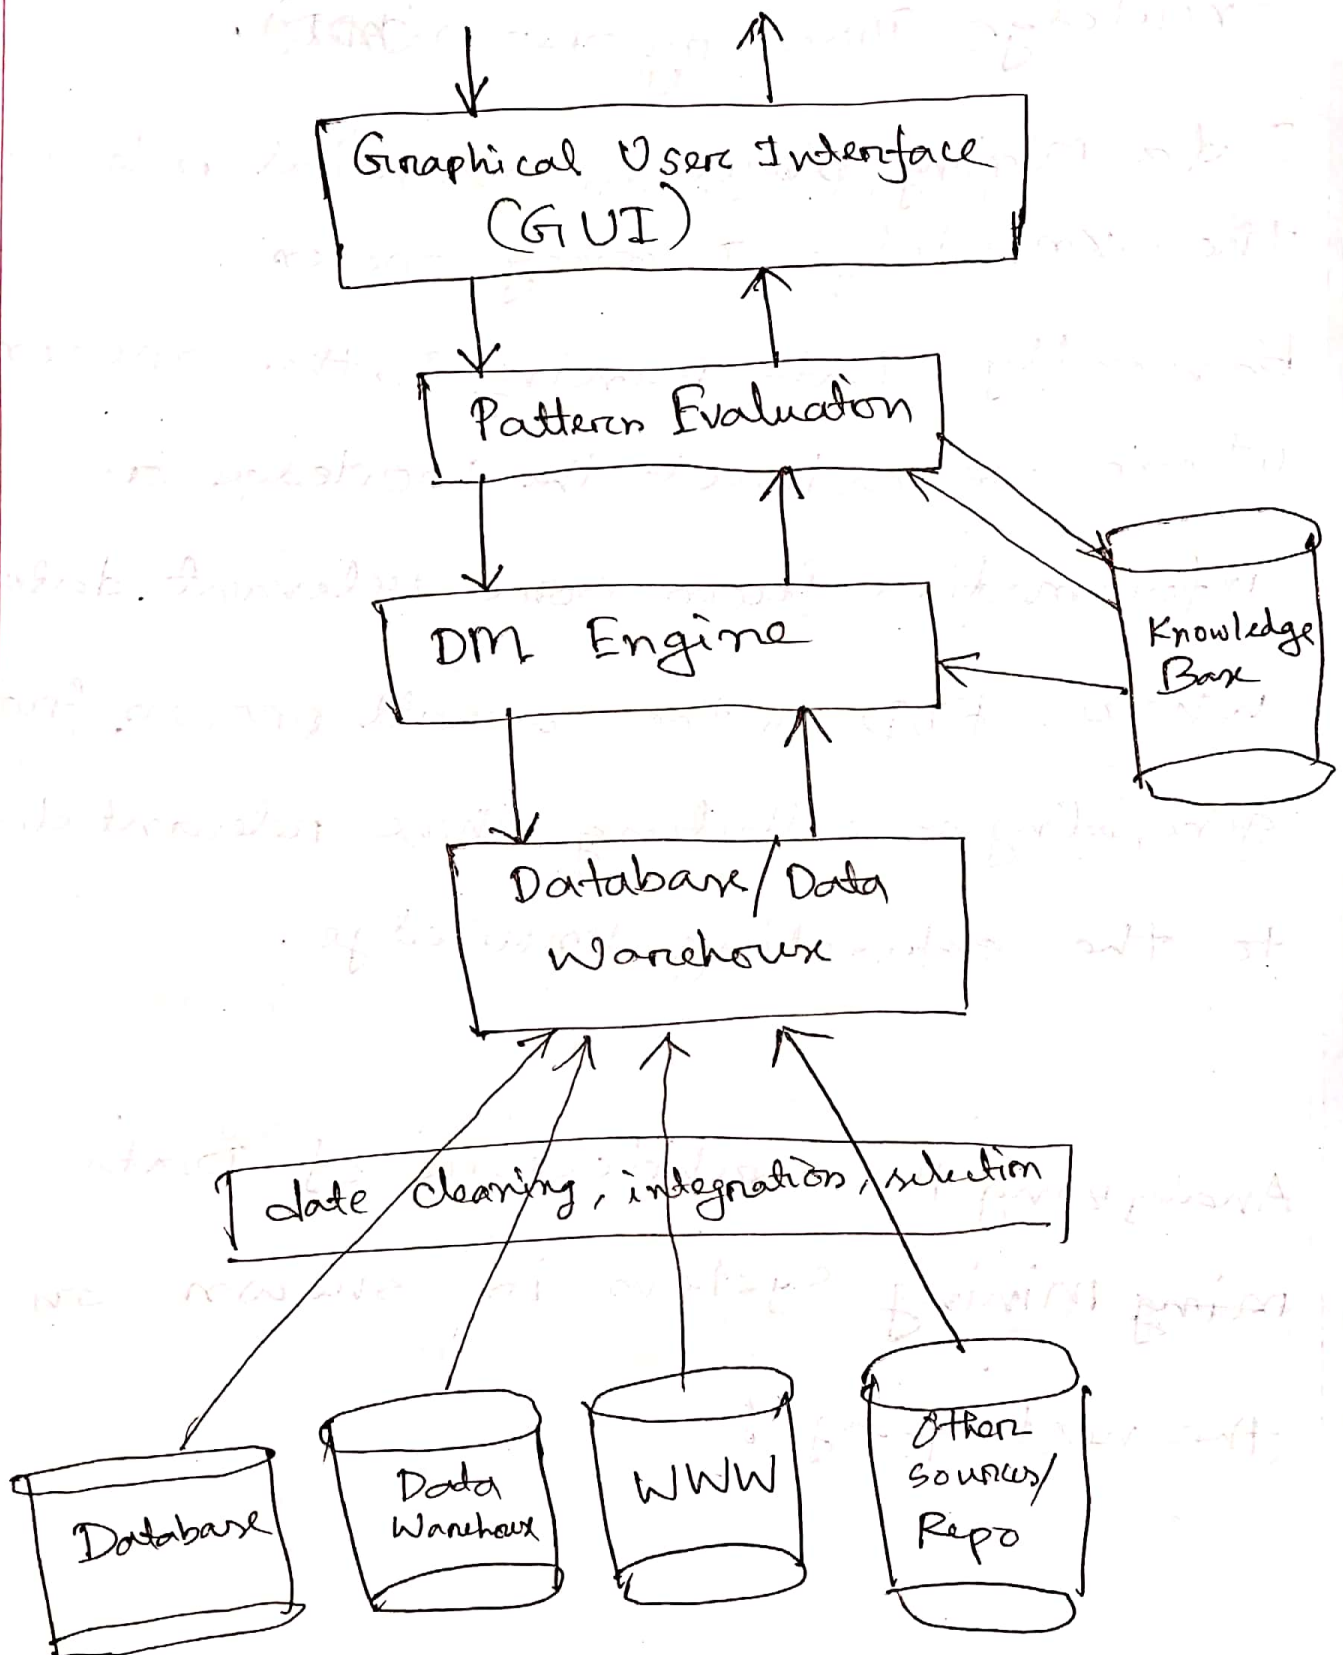 Graphical User Interface
(GUI)
Pattern Evaluation
DM Engine
Knowledge
Base
Database/Data
Warehouse
date cleaning, integration, selection
Database
Data
Warehouse
WWW
Other
Sources/
Repo